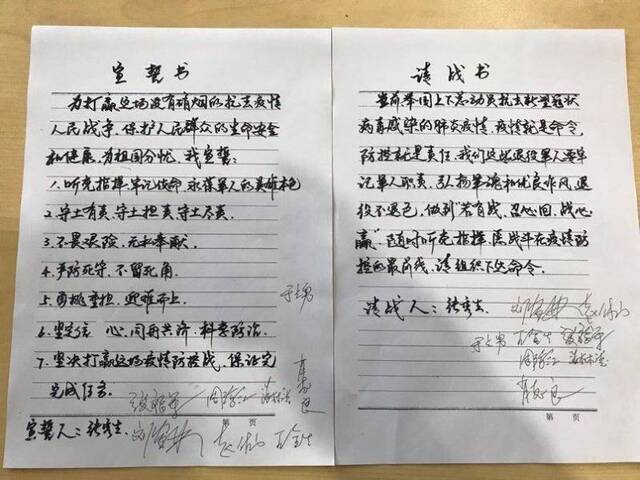 宣誓书
为打赢这场没有硝烟的抗击疫情
人民战争,保护人民群众的生命安全
和健康,为祖国分忧,我宣誓:
1.听党指挥,牢记使命,永葆军人的英雄本色
2.守土有责,守土担责,守土尽责.
3.不畏艰险,无私奉献.
4.严防死守,不留死角.
5.勇挑重担,迎难而上.
6.坚定信心,同舟共济,科学防治.
7.坚决打赢这场疫情防控战,保证完
完成任务.
宣誓人:
第 页
请战书
当前举国上下总动员抗击新型冠状
病毒感染的肺炎疫情,疫情就是命令,
防控就是责任.我们这些退役军人要牢
记军人职责,弘扬军魂和优良作风,退
役不退色,做到"若有战,召必回,战必
赢"随时听党指挥,愿战斗在疫情防
控的最前线,请组织下达命令.
请战人:
第 页